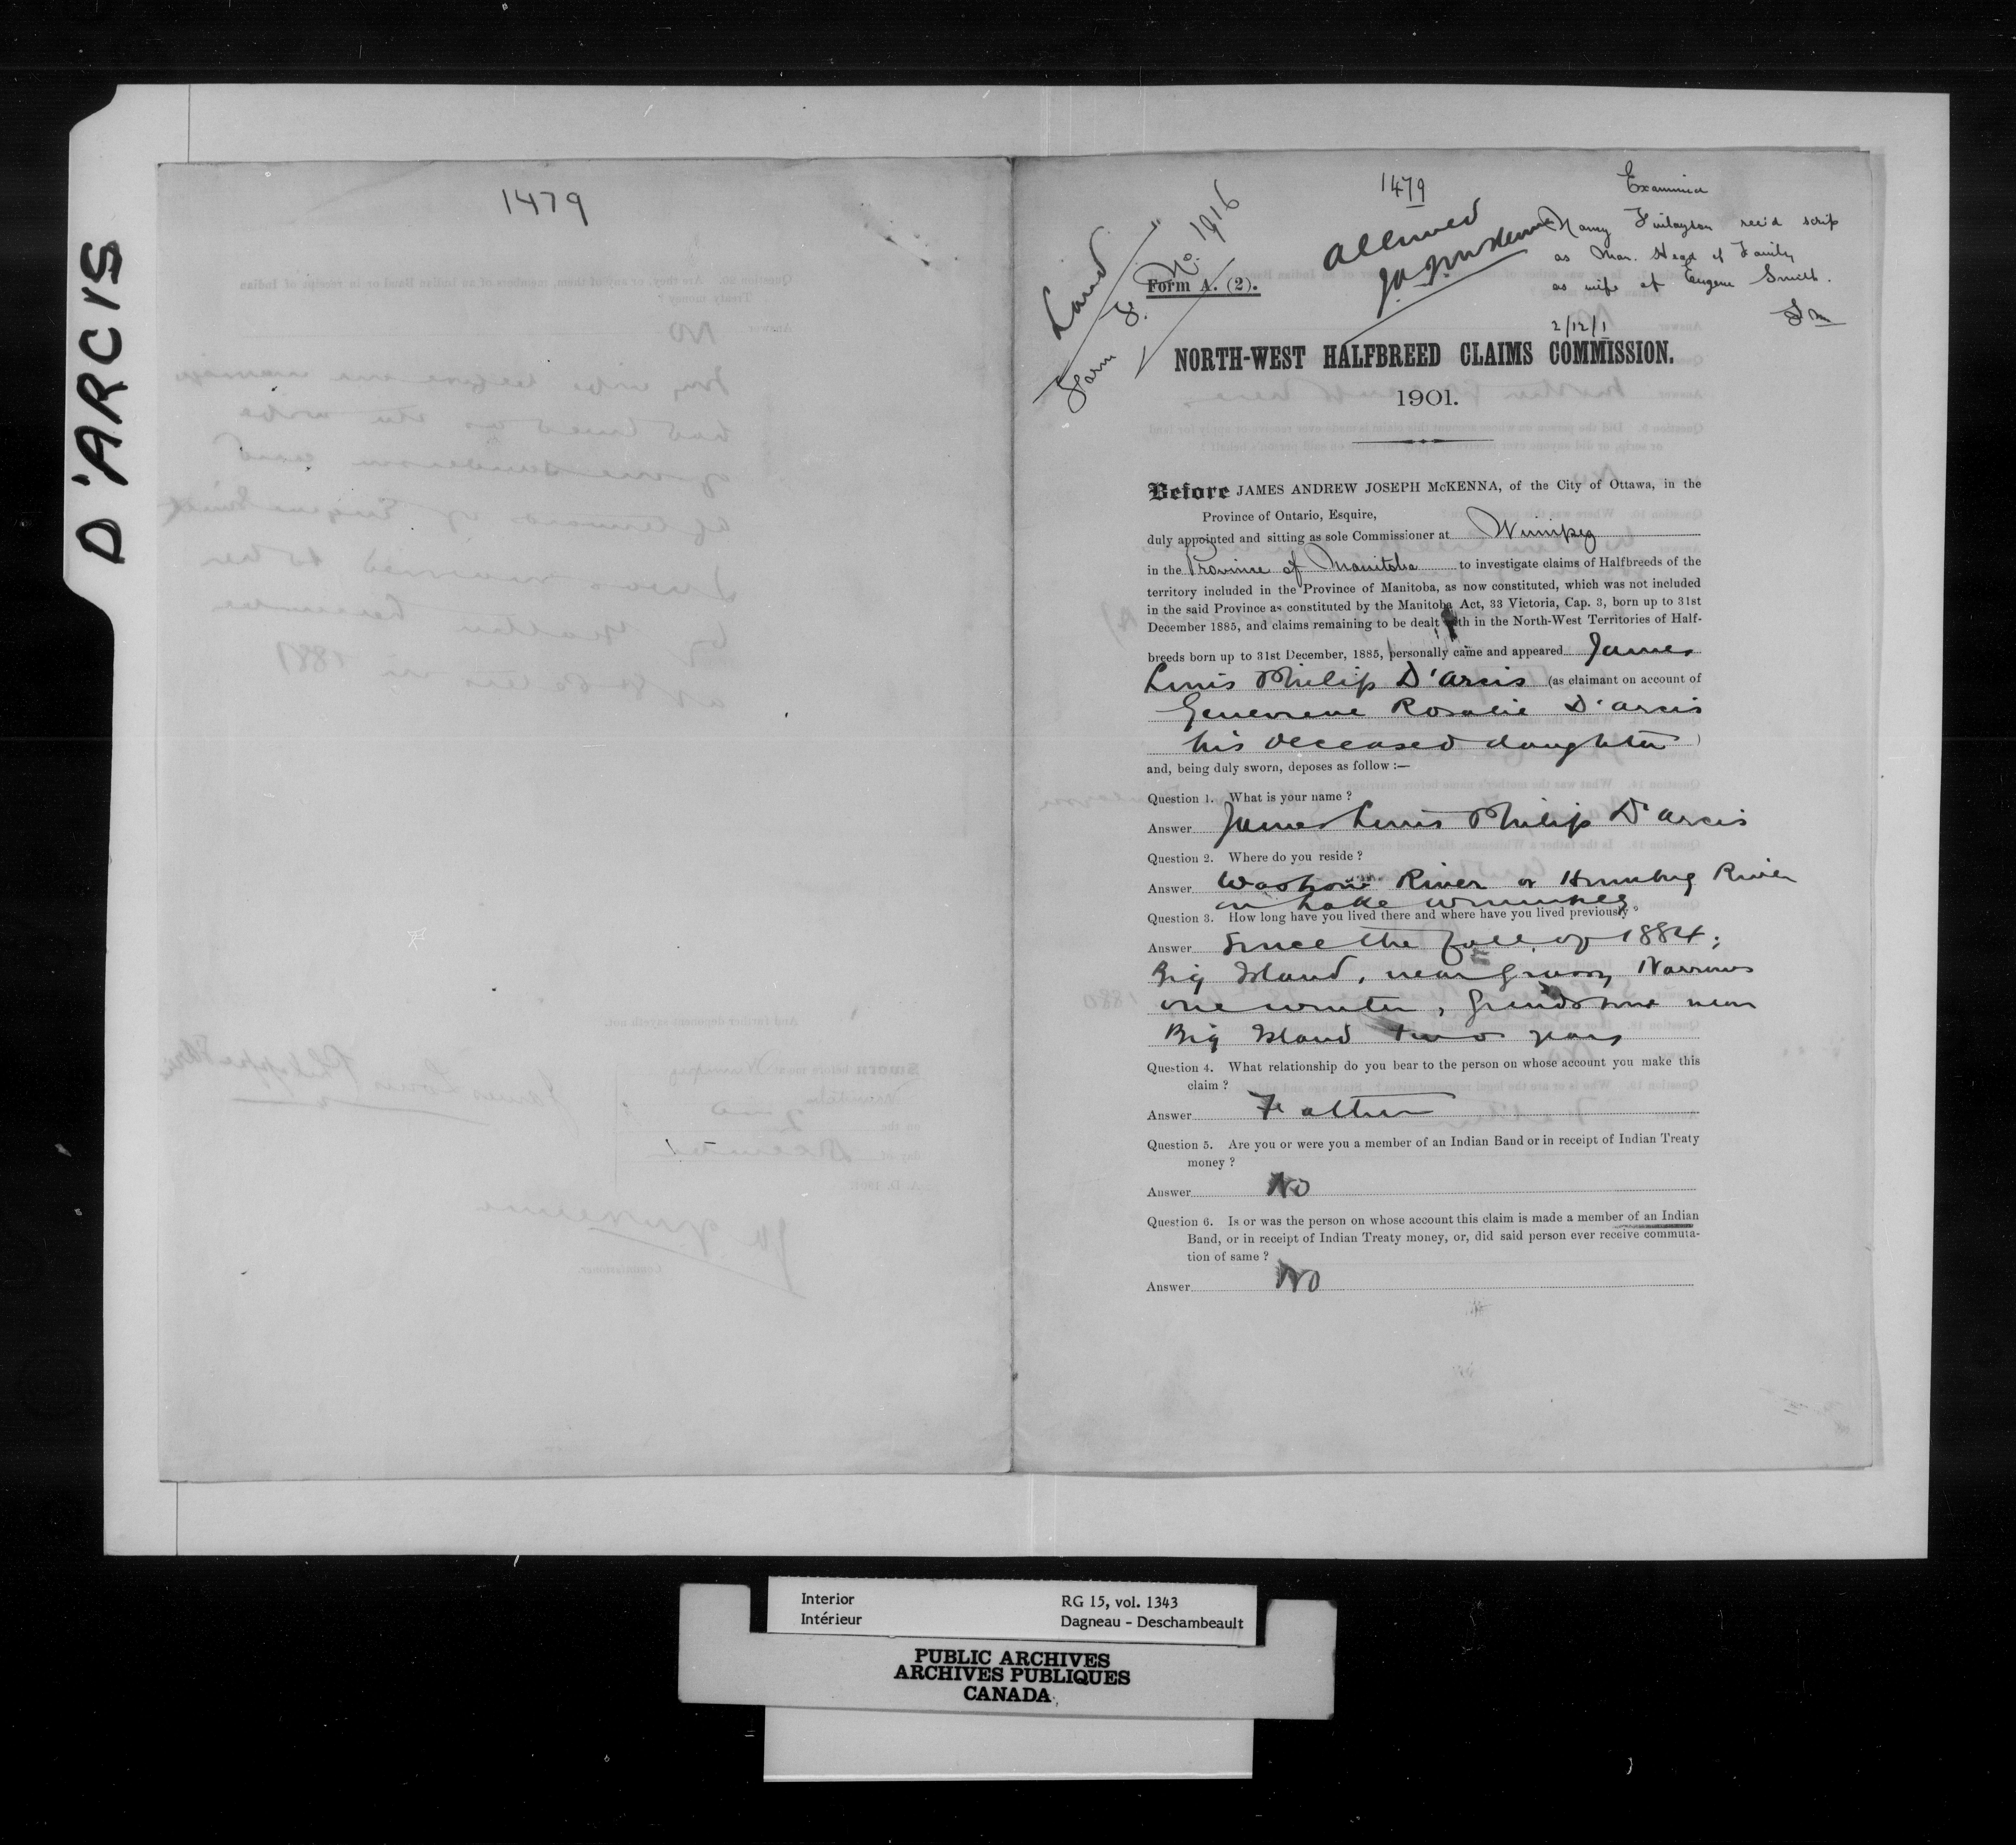 D'ARCIS
1479
1479
Examined
Nancy Finlayson rec'd scrip
as Man. Head of Family
as wife of Eugene Smith.
2/12/1
Allowed
J A J McKenna
Land
Form F. No. 1916
Form A. (2).
NORTH-WEST HALFBREED CLAIMS COMMISSION.
1901.
Before JAMES ANDREW JOSEPH McKENNA, of the City of Ottawa, in the
Province of Ontario, Esquire,
duly appointed and sitting as sole Commissioner at Winnipeg
in the Province of Manitoba to investigate claims of Halfbreeds of the
territory included in the Province of Manitoba, as now constituted, which was not included
in the said Province as constituted by the Manitoba Act, 33 Victoria, Cap. 3, born up to 31st
December 1885, and claims remaining to be dealt with in the North-West Territories of Half-
breeds born up to 31st December, 1885, personally came and appeared James
Louis Philip D'Arcis (as claimant on account of
Genevieve Rosalie D'Arcis
his deceased daughter )
and, being duly sworn, deposes as follow :—
Question 1. What is your name ?
Answer James Louis Philip D'Arcis
Question 2. Where do you reside ?
Answer Washow River or Humbug River
on Lake Winnipeg
Question 3. How long have you lived there and where have you lived previously ?
Answer Since the fall of 1884;
Big Island, near Grassy Narrows
one winter, Grindstone near
Big Island two years
Question 4. What relationship do you bear to the person on whose account you make this
claim ?
Answer Father
Question 5. Are you or were you a member of an Indian Band or in receipt of Indian Treaty
money ?
Answer No
Question 6. Is or was the person on whose account this claim is made a member of an Indian
Band, or in receipt of Indian Treaty money, or, did said person ever receive commuta-
tion of same ?
Answer No
Interior
Intérieur
RG 15, vol. 1343
Dagneau - Deschambeault
PUBLIC ARCHIVES
ARCHIVES PUBLIQUES
CANADA